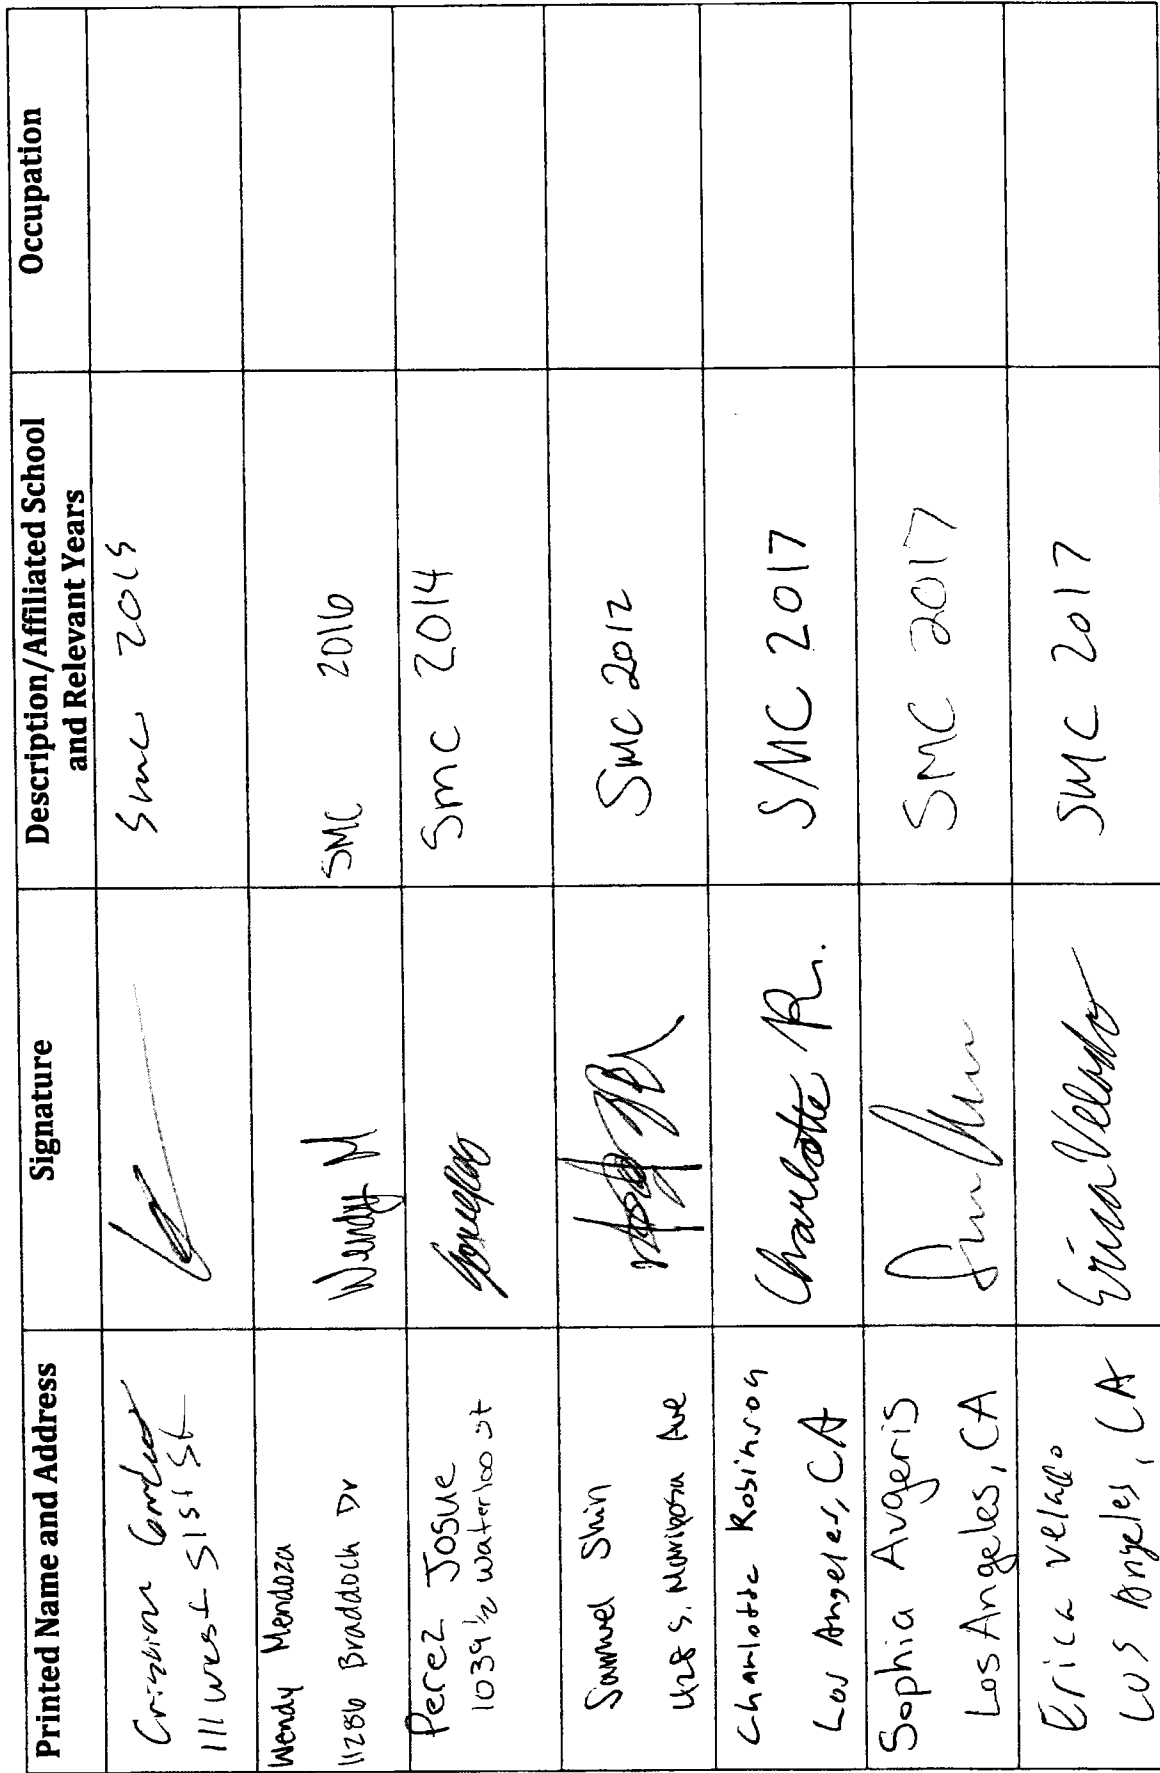 Printed Name and Address
Signature
Description/Affiliated School
and Relevant Years
Occupation
111 West 51st St
Smc 2015
Wendy Mendoza
11286 Braddock Dr
Wendy M
SMC 2016
Perez Josue
1039 1/2 Waterloo st
Smc 2014
Samuel Shin
428 S. Mariposa Ave
SMC 2012
Charlotte Robinson
Los Angeles, CA
Charlotte R.
SMC 2017
Sophia Avgeris
Los Angeles, CA
SMC 2017
Erica Velado
Los Angeles, CA
Erica Velado
SMC 2017